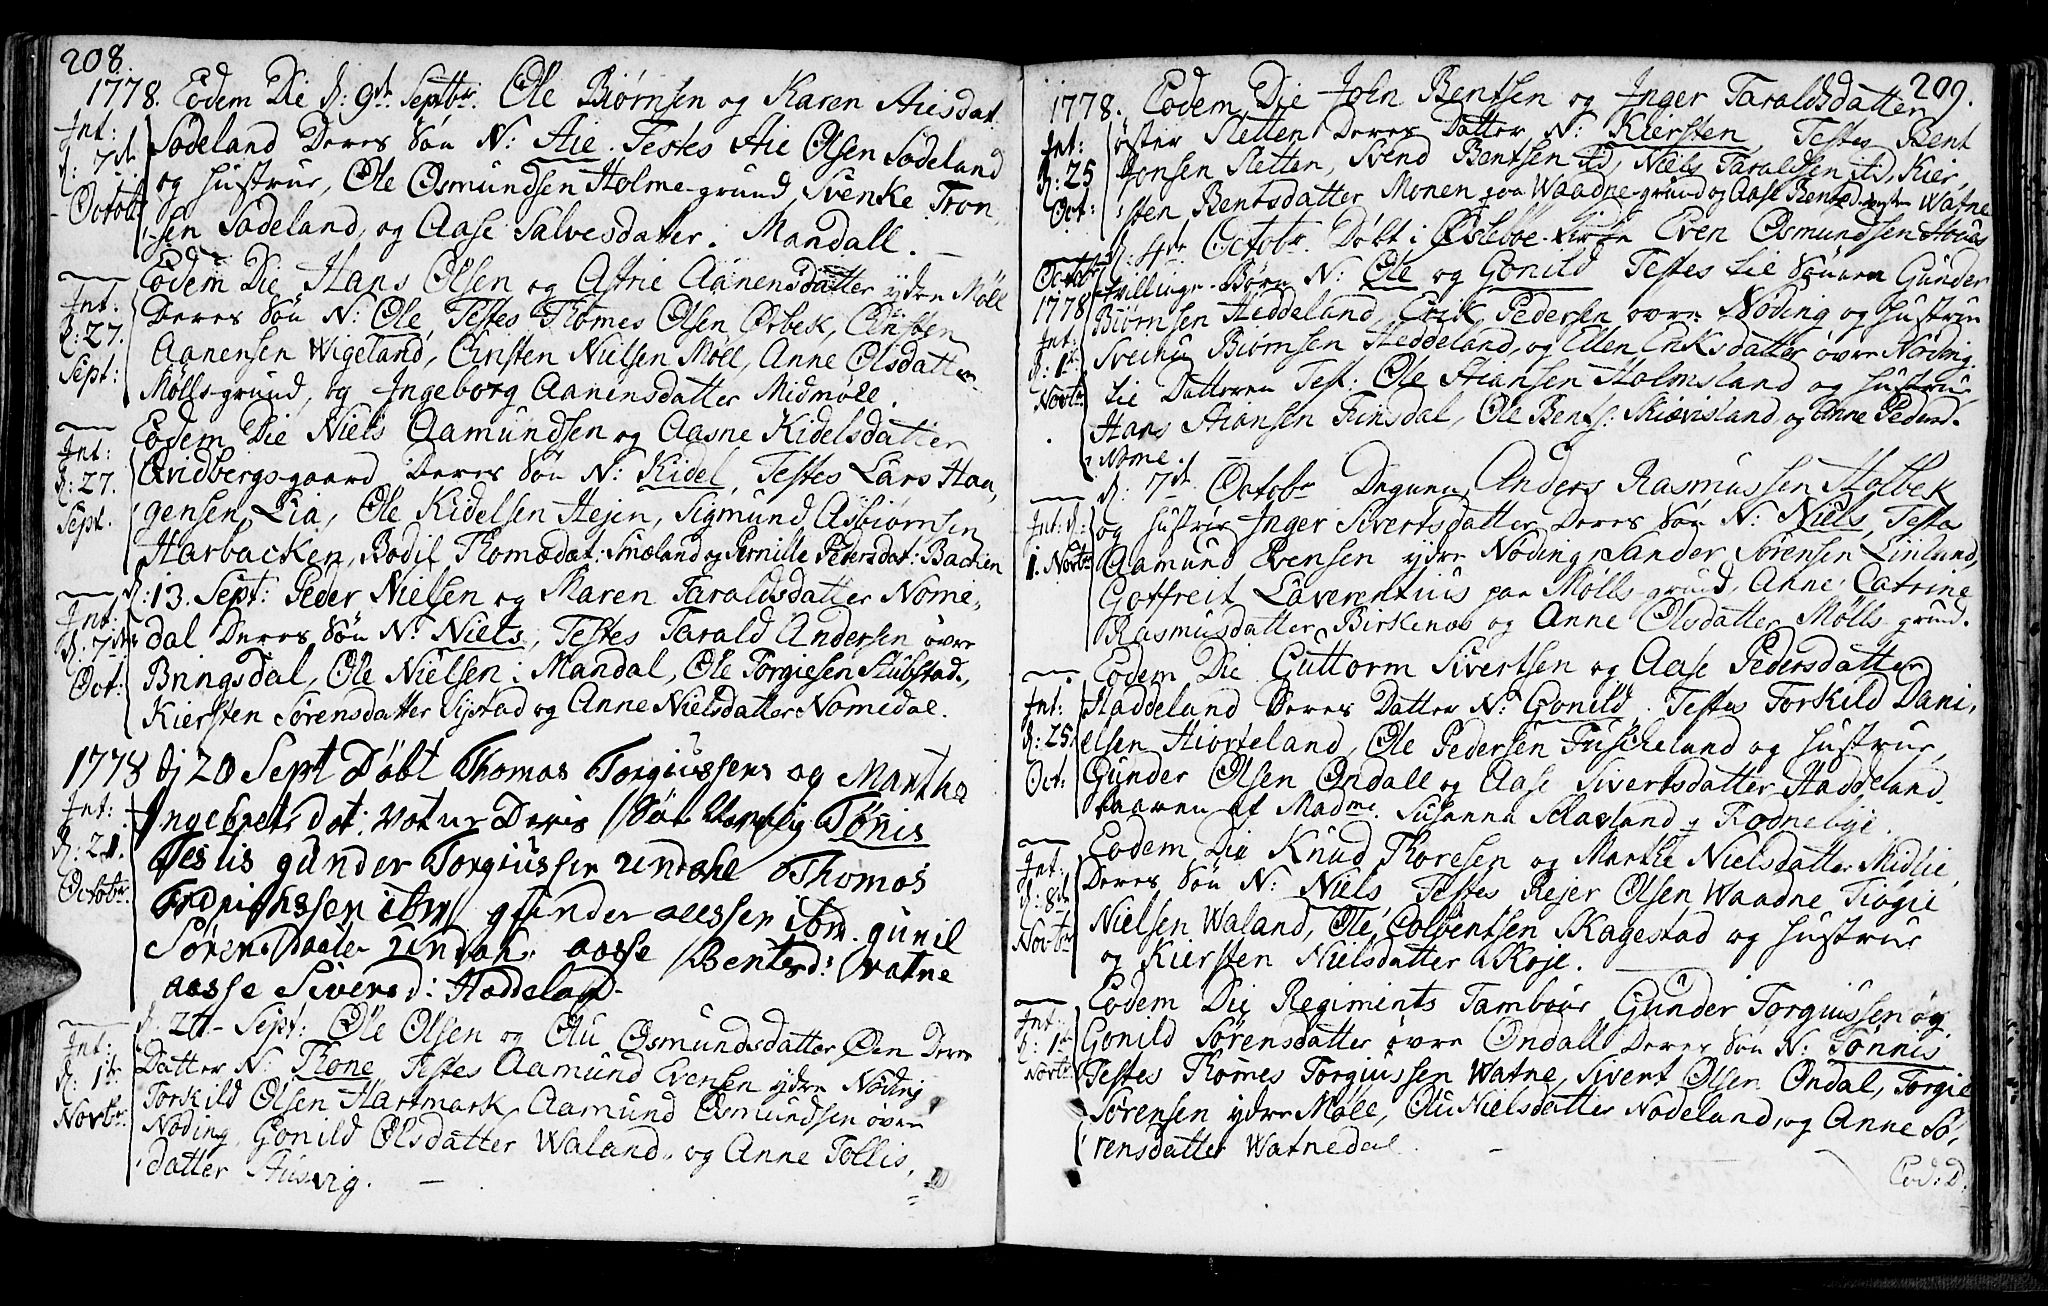 208.
1778. Eodem Die d: 9de Septbr. Ole Biørnsen og Karen Aiesdat.
Int:
d: 7de
Octob:
Sodeland Deres Søn N: Aie. Testes Aie Olsen Sodeland
og Hustrue, Ole Osmundsen Holme-grund, Svenke Tron,
sen Sodeland, og Aase Salvesdatter i Mandall.
Int:
d: 27.
Sept:
Eodem Die Hans Olsen og Astrie Aanensdatter ydre Möll
Deres Søn N: Ole, Testes Thomes Olsen Orbek, Christen
Aanensen Wigeland, Christen Nielsen Möll, Anne Olsdatter
Mølls-grund, og Ingeborg Aanensdatter Midmøll.
Int:
d: 27.
Sept.
Eodem Die Niels Aamundsen og Aasne Kidelsdatter
Andbergs-gaard Deres Søn N: Kidel, Testes Lars Haa,
gensen Lia, Ole Kidelsen Hejen, Sigmund Asbiørnsen
Harbacken, Bodil Thomædat: Smæland og Pernille Pedersdat: Bachen
Int:
d: 7de
Oct:
d: 13. Sept: Peder Nielsen og Maren Taraldsdatter Nome,
dal Deres Søn N: Niels, Testes Tarald Andersen övre
Bringsdal, Ole Nielsen i Mandal, Ole Torgiesen Stubstad,
Kiersten Sørensdatter Sijstad og Anne Nielsdatter Nomedal.
1778 Dj 20 Sept Döbt Thomas Torgiussens og Martha
Int:
d: 21.
Octobr.
Ingebretsdot: Votne Deris Søn Navnlig Tønis
Testis gunder Torgiussen undahl Thomas
Fredrichssen ibm gunder aessen ibm. gunil
Sørens daater undahl aasse Bentsd: Vatne
aasse Siversd: Haddeland
Int:
d: 1te
Novbr.
d: 27 Sept: Ole Olsen og Olu Osmundsdatter Øen Deres
Datter N: Thone, Testes Aamund Evensen ydre Nöding
Torkild Olsen Hartmark, Aamund Osmundsen övre
Nöding, Gonild Olsdatter Waland, og Anne Tollis,
datter Ausvig.
209.
1778. Eodem Die John Bentsen og Inger Taraldsdatter
Int:
d: 25
Oct:
öster Sletten Deres Datter N: Kiersten, Testes Bent
Jonsen Sletten, Svend Bentsen ibid, Niels Taraldsen ibid, Kier,
sten Bentsdatter Monen paa Waadne-grund og Aase Bentsd. Watne
Octobr
1778
Int:
d: 1te
Novbr
d: 4de Octobr. Döbt i Øslebøe-Kirke Even Osmundsen
tvillinge-Børn N: Ole og Gonild Testes til Sønnen Gunder
Biörnsen Heddeland, Erik Pedersen övre Nöding og Hustrue
Biörnsen Heddeland, og Ellen Eriksdatter övre Nöding.
til Datteren Test: Ole Hansen Holmsland og Hustrue,
Hans Hansen Finsdal, Ole Bents: Skiævisland, og Anne Pedersd.
Nome.
Int: d:
1. Novbr
d: 7de Octobr Degnen Anders Rasmussen Holbek
og Hustrue Inger Sivertsdatter Deres Søn N: Niels, Testes
Aamund Evensen ydre Nöding, Sander Sörensen Linlund,
Gotfreit Laverentius paa Mølls-grund, Anne Catrine
Rasmusdatter Birkenes og Anne Olsdatter Mølls-grund.
Int:
d: 25
Oct:
Eodem Die Guttorm Sivertsen og Aase Pedersdatter
Haddeland Deres Datter N: Gonild. Testes Torkild Dani,
elsen Hiorteland, Ole Pedersen Fuscheland og Hustrue,
Gunder Olsen Ondall og Aase Sivertsdatter Haddeland.
baaren af Madme. Susanna i Rodnebye.
Int:
d: 8de
Novbr
Eodem Die Knud Thoresen og Marthe Nielsdatter Midlie
Deres Søn N: Niels, Testes Rejer Olsen Waadne Tiögie
Nielsen Waland, Ole Colbentsen Skagestad og Hustrue
og Kiersten Nielsdatter Skoje.
Int:
d: 1te
Novbr
Eodem Die Regiments Tambour Gunder Torgiussen og
Gonild Sörensdatter övre Ondall Deres Søn N: Tönnis
Testes Thomes Torgiussen Watne, Sivert Olsen Ondal, Torgie
Sörensen ydre Møll, Olu Nielsdatter Nodeland, og Anne Sö,
rensdatter Watnedal.
Eod: D.